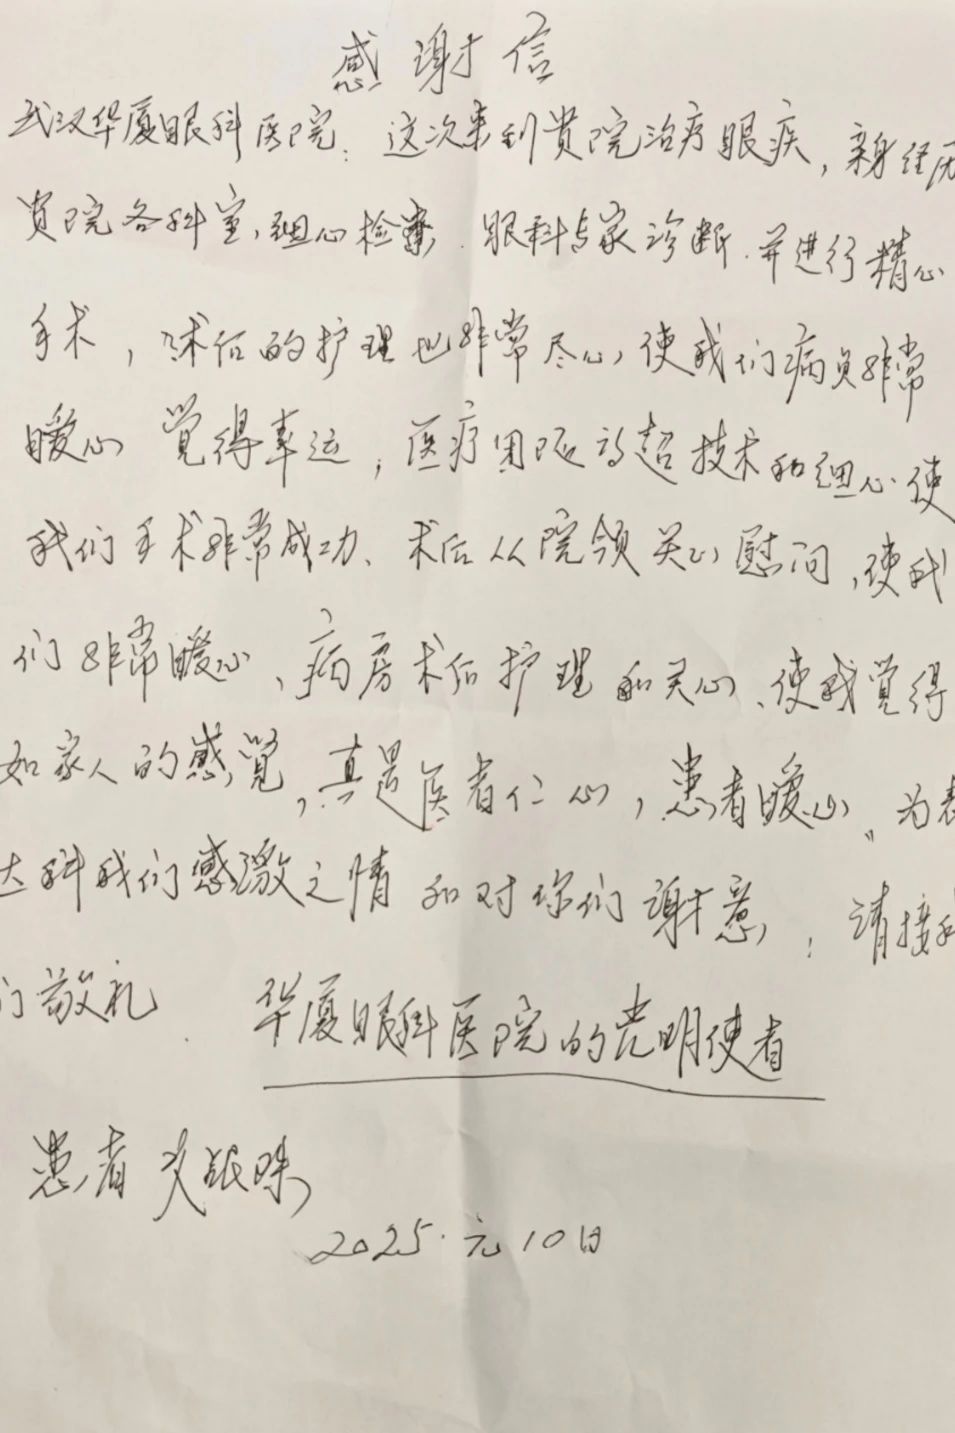 感谢信
武汉华厦眼科医院：这次来到贵院治疗眼疾，亲身经历
贵院各科室，细心检察，眼科专家诊断．并进行精心
手术，术后的护理也非常尽心，使我们病员非常
暖心 觉得幸运，医疗团队高超技术和细心使
我们手术非常成功、术后从院领关心慰问，使我
们非常暖心、病房术后护理和关心、使我觉得
如家人的感觉，真是医者仁心，患者暖心〃为表
达科我们感激之情和对你们谢意，：请接我
们敬礼．华厦眼科医院的光明使者
患者
2025．元10日